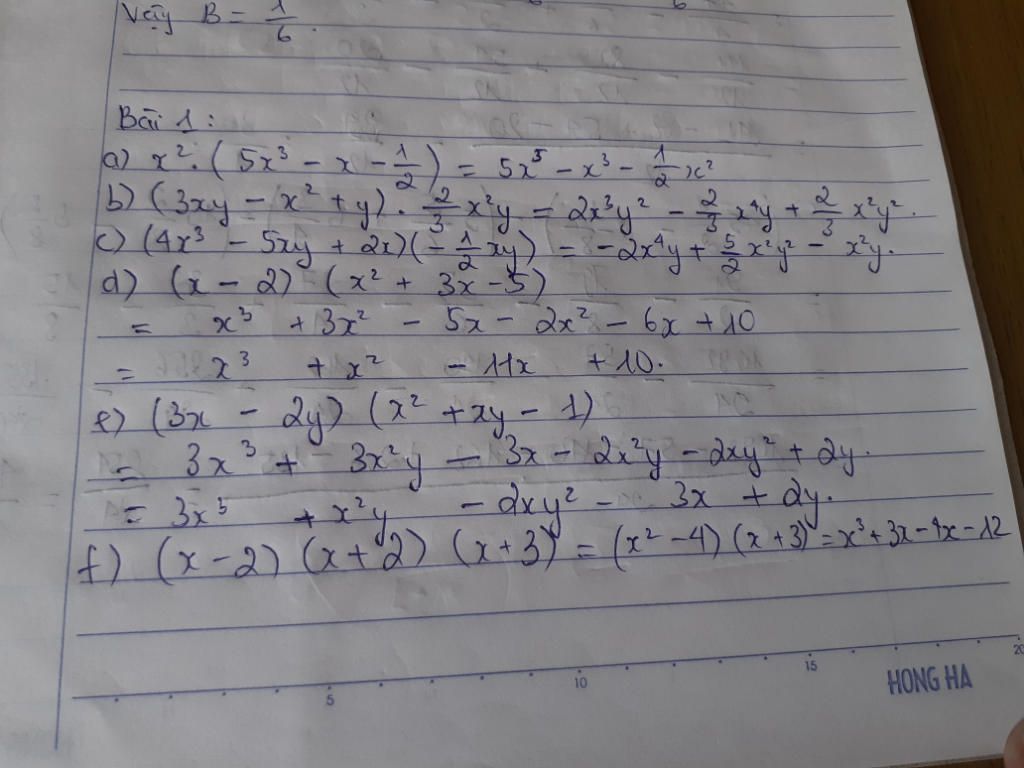 Vậy B = 1/6.
Bài 1:
a) x². (5x³ - x - 1/2) = 5x⁵ - x³ - 1/2 x²
b) (3xy - x² + y). 2/3 x²y = 2x³y² - 2/3 x⁴y + 2/3 x²y².
c) (4x³ - 5xy + 2x)(-1/2 xy) = -2x⁴y + 5/2 x²y² - x²y.
d) (x - 2) (x² + 3x - 5)
= x³ + 3x² - 5x - 2x² - 6x + 10
= x³ + x² - 11x + 10.
e) (3x - 2y) (x² + xy - 1)
= 3x³ + 3x²y - 3x - 2x²y - 2xy² + 2y.
= 3x³ + x²y - 2xy² - 3x + 2y.
f) (x - 2) (x + 2) (x + 3) = (x² - 4) (x + 3) = x³ + 3x - 4x - 12
5 10 15 20
HONG HA